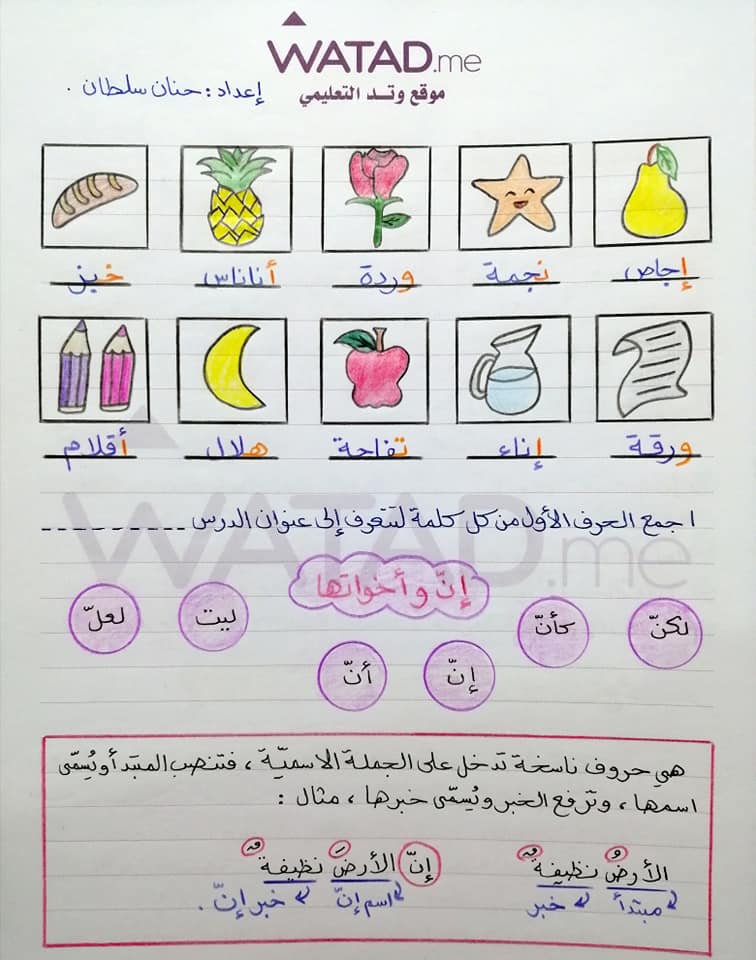 WATAD.me
موقع وتد التعليمي
إعداد : حنان سلطان .
إجاص نجمة وردة أناناس خبز
ورقة إناء تفاحة هلال أقلام
اجمع الحرف الأول من كل كلمة لنتعرف إلى عنوان الدرس _ _ _ _ _ _ _ _ _
WATAD.me
إنّ و أخواتها
لكنّ كأنّ إنّ أنّ ليت لعلّ
هي حروف ناسخة تدخل على الجملة الاسميّة ، فتنصب المبتدأ ويُسمّى
اسمها ، وترفع الخبر ويُسمّى خبرها ، مثال :
الأرضُ نظيفةٌ إنّ الأرضَ نظيفةٌ
مبتدأ خبر اسم إنّ خبر إنّ .